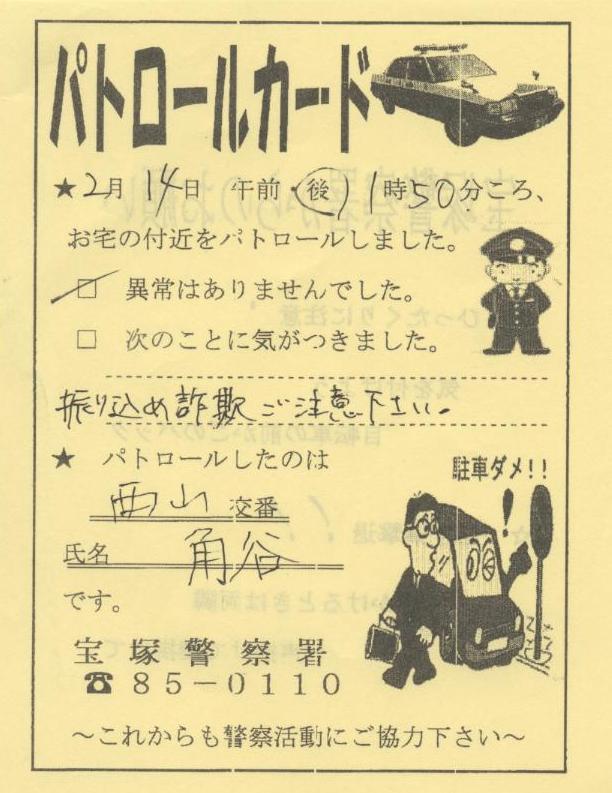 パトロールカード
★2月14日 午前・後 1時50分ころ、
お宅の付近をパトロールしました。
□ 異常はありませんでした。
□ 次のことに気がつきました。
振り込め詐欺ご注意下さい。
★ パトロールしたのは
西山交番
氏名 角谷
です。
駐車ダメ!!
!
宝塚警察署
☎85-0110
~これからも警察活動にご協力下さい~